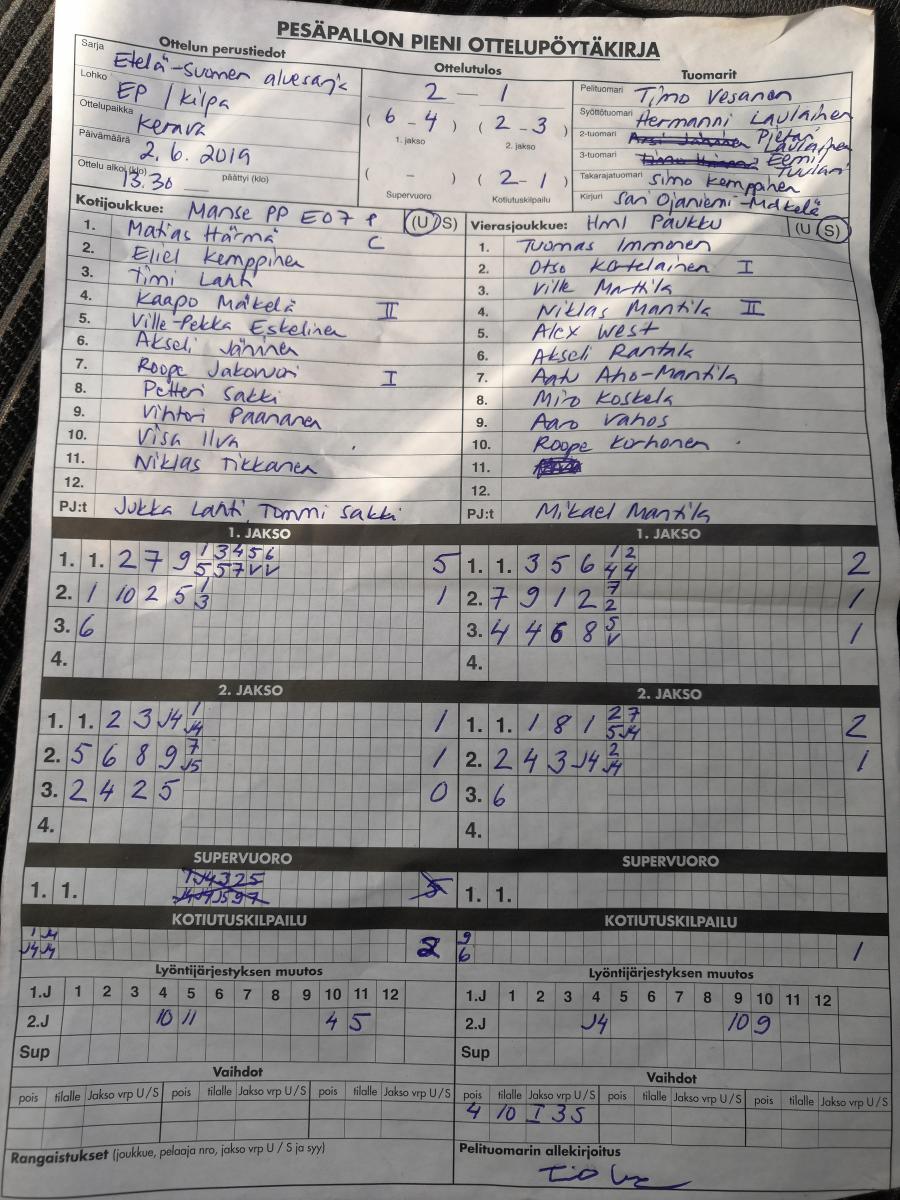 PESÄPALLON PIENI OTTELUPÖYTÄKIRJA
Ottelun perustiedot
Sarja Etelä-Suomen aluesarja
Lohko EP / Kilpa
Ottelupaikka Kerava
Päivämäärä 2.6.2019
Ottelu alkoi (klo) 13.30 päättyi (klo)
Ottelutulos
2 - 1
( 6 - 4 ) ( 2 - 3 )
1. jakso 2. jakso
( - ) ( 2 - 1 )
Supervuoro Kotiutuskilpailu
Tuomarit
Pelituomari Timo Vesanen
Syöttötuomari Hermanni Laulainen
2-tuomari Pietari Laulainen
3-tuomari Eemi Tuulari
Takarajatuomari Simo Kemppinen
Kirjuri Sari Ojaniemi-Mäkelä
Kotijoukkue: Manse PP E07 P (U/S)
1. Matias Härmä C
2. Eliel Kemppinen
3. Timi Lahti
4. Kaapo Mäkelä II
5. Ville-Pekka Eskelinen
6. Akseli Jäninen
7. Roope Jakowuori I
8. Petteri Sakki
9. Vihtori Paananen
10. Visa Ilva
11. Niklas Tikkanen
12.
PJ:t Jukka Lahti, Tommi Sakki
Vierasjoukkue: Hml Paukku (U/S)
1. Tuomas Immonen
2. Otso Kotelainen I
3. Ville Marttila
4. Niklas Mantila II
5. Alex West
6. Akseli Rantala
7. Aatu Aho-Mantila
8. Miro Koskela
9. Aaro Vahos
10. Roope Korhonen
11.
12.
PJ:t Mikael Mantila
1. JAKSO
1. 1. 2 7 9 1 3 4 5 6 5
5 5 7 V V
2. 1 10 2 5 1 1
3
3. 6
4.
1. JAKSO
1. 1. 3 5 6 1 2 2
4 4
2. 7 9 1 2 7 1
2
3. 4 4 6 8 5 1
V
4.
2. JAKSO
1. 1. 2 3 J4 1 1
J4
2. 5 6 8 9 7 1
J5
3. 2 4 2 5 0
4.
2. JAKSO
1. 1. 1 8 1 2 7 2
5 J4
2. 2 4 3 J4 2 1
J4
3. 6
4.
SUPERVUORO
1. 1.
SUPERVUORO
1. 1.
KOTIUTUSKILPAILU
1 J4 2
J4 J4
KOTIUTUSKILPAILU
9 1
6
Lyöntijärjestyksen muutos
1.J 1 2 3 4 5 6 7 8 9 10 11 12
2.J 10 11 4 5
Sup
Lyöntijärjestyksen muutos
1.J 1 2 3 4 5 6 7 8 9 10 11 12
2.J J4 10 9
Sup
Vaihdot
pois tilalle Jakso vrp U/S pois tilalle Jakso vrp U/S pois tilalle Jakso vrp U/S
Vaihdot
pois tilalle Jakso vrp U/S pois tilalle Jakso vrp U/S pois tilalle Jakso vrp U/S
4 10 I 3 S
Rangaistukset (joukkue, pelaaja nro, jakso vrp U / S ja syy)
Pelituomarin allekirjoitus